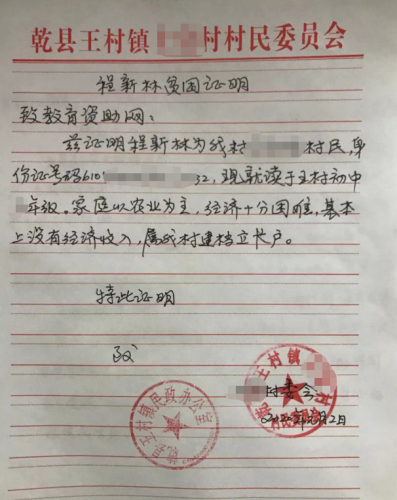 乾县王村镇 村村民委员会
程新林贫困证明
致教育资助网:
兹证明程新林为我村 村民,身
份证号码610 32,现就读于王村初中
年级。家庭以农业为主,经济十分困难,基本
上没有经济收入,属我村建档立长户。
特此证明
王村镇
村委会
村民委员会
王村镇民政办公室
2020年 月2日